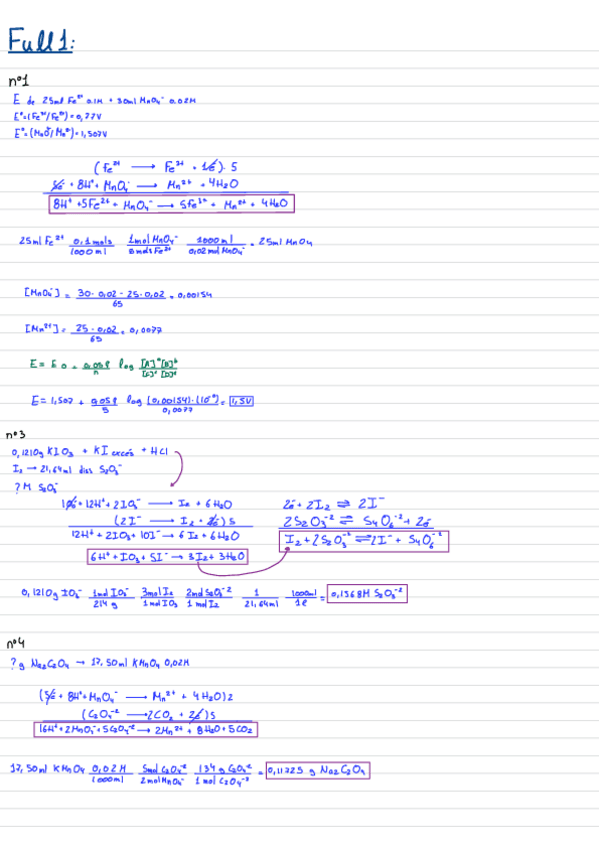 Full 1:
nº1
E de 25ml Fe²⁺ 0.1M + 30ml MnO₄⁻ 0.02M
Eº=(Fe³⁺/Fe²⁺)=0,77V
= 1,507V
(Fe²⁺ → Fe³⁺ + 1e⁻)·5
5e⁻ + 8H⁺ + MnO₄⁻ → Mn²⁺ + 4H₂O
8H⁺ + 5Fe²⁺ + MnO₄⁻ → 5Fe³⁺ + Mn²⁺ + 4H₂O
25ml Fe²⁺ 0,1mols/1000ml 1mol MnO₄⁻/5mols Fe²⁺ 1000ml/0,02mol MnO₄⁻ = 25ml MnO₄
[MnO₄⁻] = 30·0,02 - 25·0,02/65 = 0,00154
[Mn²⁺] = 25·0,02/65 = 0,0077
E = E0 + 0,059/n log [A]ᵃ[B]ᵇ/[C]ᶜ[D]ᵈ
E = 1,507 + 0,059/5 log (0,00154)·/0,0077 = 1,5V
nº3
0,1210g KIO₃ + KI excés + HCl
I₂ → 21,64ml diss S₂O₃⁻
? M S₂O₃⁻
10e⁻ + 12H⁺ + 2IO₃⁻ → I₂ + 6H₂O
(2I⁻ → I₂ + 2e⁻)5
12H⁺ + 2IO₃ + 10I⁻ → 6I₂ + 6H₂O
6H⁺ + IO₃ + 5I⁻ → 3I₂ + 3H₂O
2e⁻ + 2I₂ ⇌ 2I⁻
2S₂O₃⁻² ⇌ S₄O₆⁻² + 2e⁻
I₂ + 2S₂O₃⁻² ⇌ 2I⁻ + S₄O₆⁻²
0,1210g IO₃⁻ 1mol IO₃⁻/214g 3mol I₂/1mol IO₃ 2mol S₂O₃⁻²/1mol I₂ 1/21,64ml 1000ml/1l = 0,1568M S₂O₃⁻²
nº4
? g Na₂C₂O₄ → 17,50ml KMnO₄ 0,02M
(5e⁻ + 8H⁺ + MnO₄⁻ → Mn²⁺ + 4H₂O)2
(C₂O₄⁻² → 2CO₂ + 2e⁻)5
16H⁺ + 2MnO₄⁻ + 5C₂O₄⁻² → 2Mn²⁺ + 8H₂O + 5CO₂
17,50ml KMnO₄ 0,02M/1000ml 5mol C₂O₄⁻²/2molMnO₄⁻ 134g C₂O₄⁻²/1mol C₂O₄⁻² = 0,11725 g Na₂C₂O₄